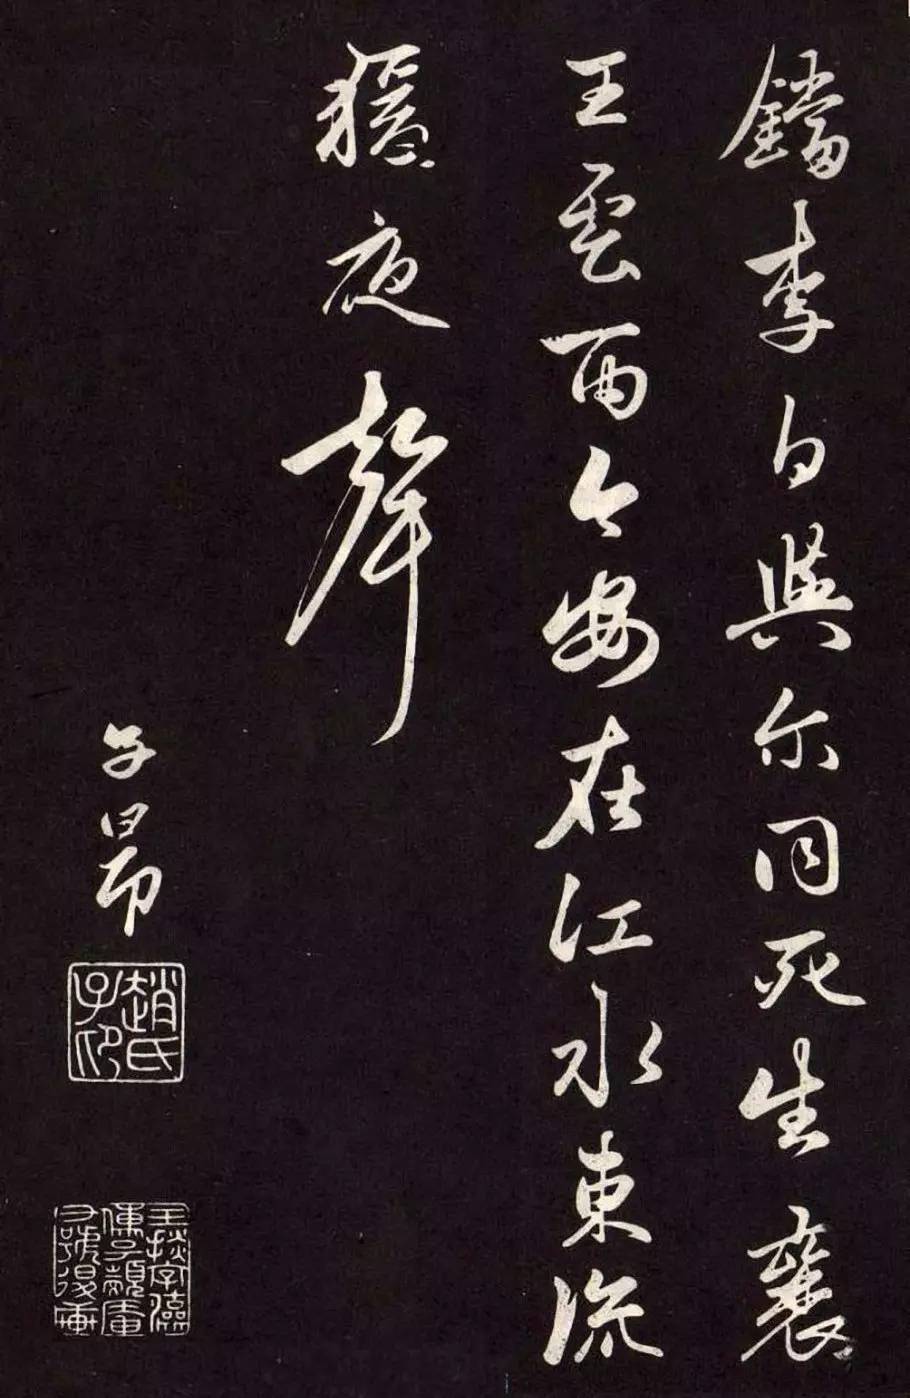 鐺李白與尔同死生襄
王雲雨今安在江水東流
猿夜聲
子昂
趙氏子昂